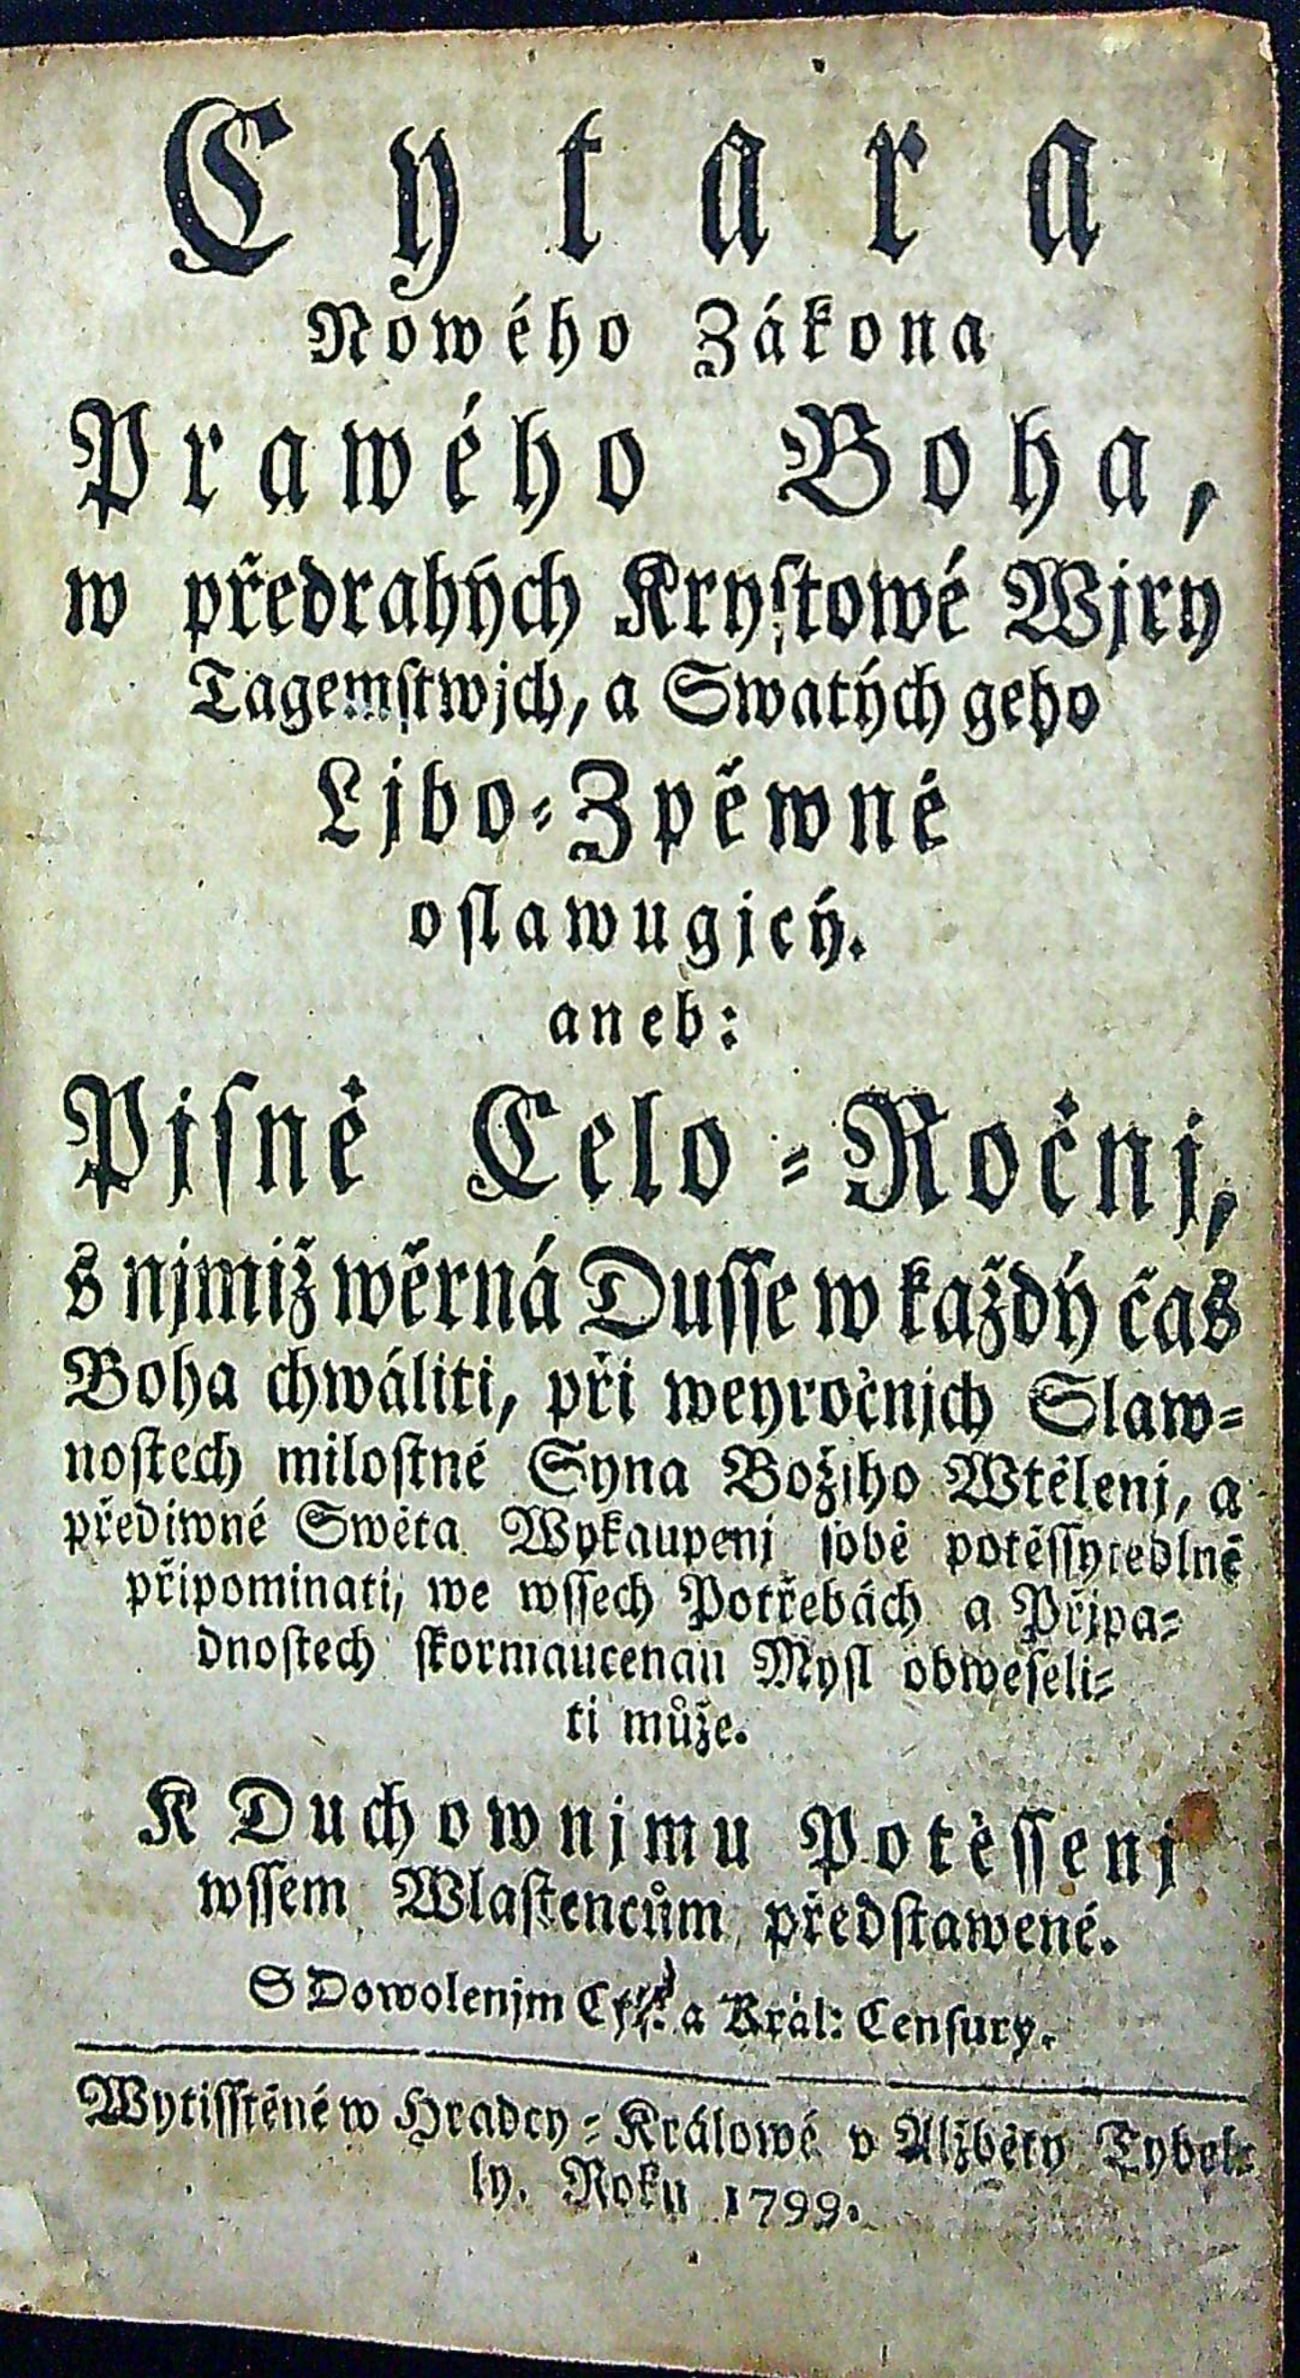 Cytara
Nowého Zákona
Prawého Boha,
w předrahých Krystowé Wjry
Tagemstwjch, a Swatých geho
Ljbo-Zpěwně
oslawugjcý.
aneb:
Pjsně Celo-Ročnj,
s njmiž wěrná Dusse w každý čas
Boha chwáliti, při weyročnjch Slaw-
nostech milostné Syna Božjho Wtělenj, a
předjwné Swěta Wykaupenj sobě potěssytedlně
připominati, we wssech Potřebách a Přjpa-
dnostech skormaucenau Mysl obweseli-
ti může.
K Duchownjmu Potěssenj
wssem Wlastencům předstawené.
S Dowolenjm a Král: Censury.
Wytisstěné w Hradcy-Králowé v Alžběty Tybel-
ly. Roku 1799.